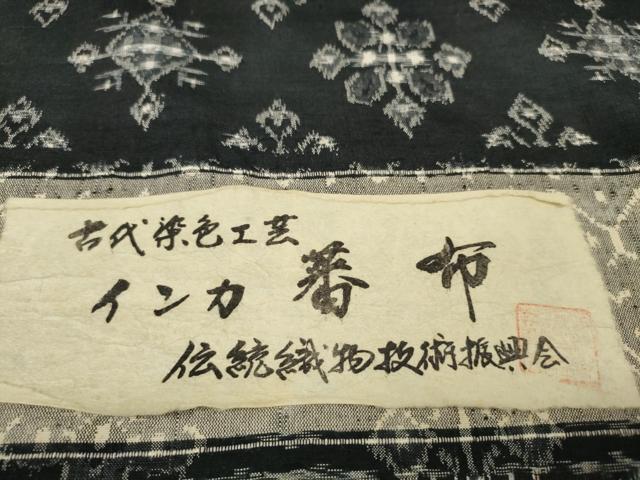 古代染色工芸
インカ 蕃布
伝統織物技術振興会